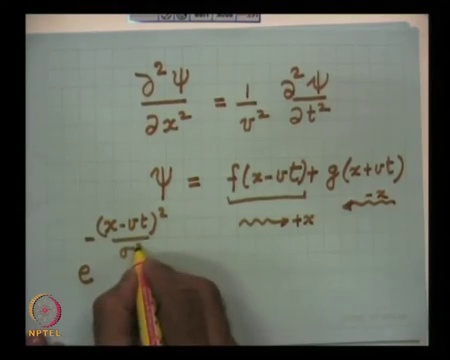 ∂²Ψ/∂x² = 1/v² ∂²Ψ/∂t²
Ψ = f(x-vt) + g(x+vt)
→ +x ← -x
e^-(x-vt)²/σ
NPTEL